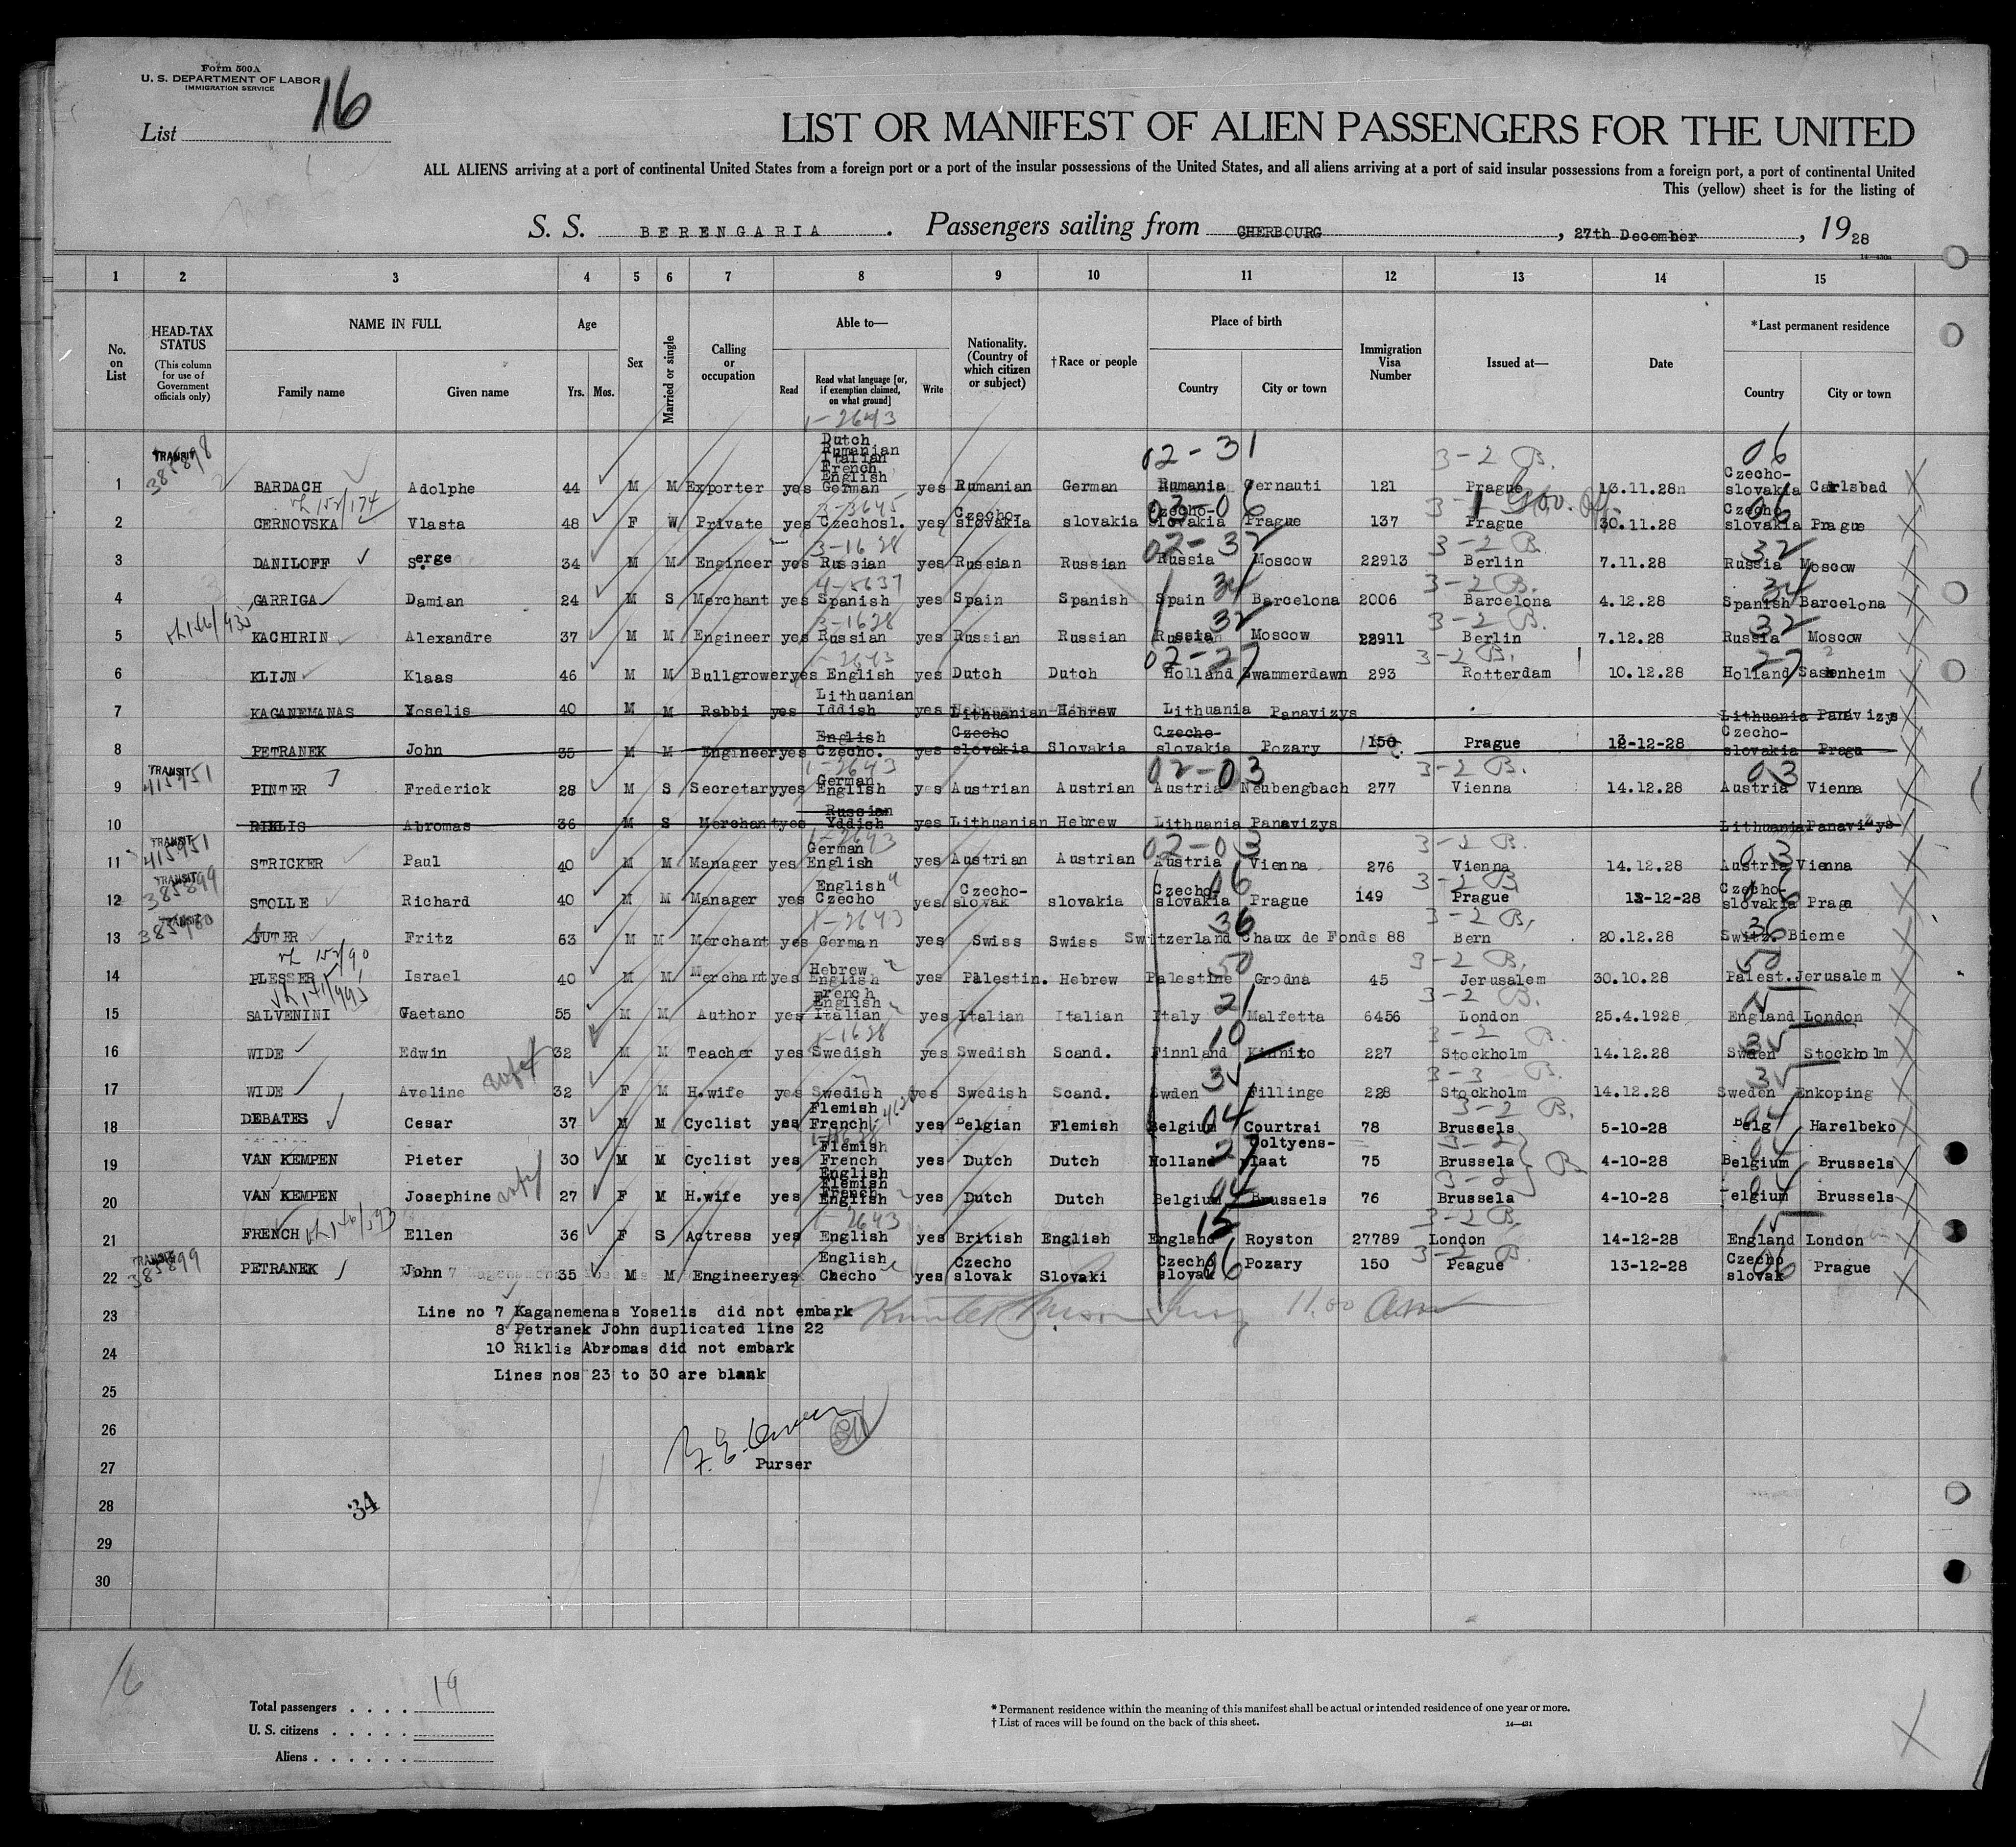 Form 500A
U. S. DEPARTMENT OF LABOR
IMMIGRATION SERVICE
List 16
LIST OR MANIFEST OF ALIEN PASSENGERS FOR THE UNITED
ALL ALIENS arriving at a port of continental United States from a foreign port or a port of the insular possessions of the United States, and all aliens arriving at a port of said insular possessions from a foreign port, a port of continental United
This (yellow) sheet is for the listing of
S. S. BERENGARIA . Passengers sailing from CHERBOURG , 27th December , 1928
1 2 3 4 5 6 7 8 9 10 11 12 13 14 15
No. on List
HEAD-TAX STATUS (This column for use of Government officials only)
NAME IN FULL Family name Given name
Age Yrs. Mos.
Sex
Married or single
Calling or occupation
Able to— Read Read what language [or, if exemption claimed, on what ground] Write
Nationality. (Country of which citizen or subject)
†Race or people
Place of birth Country City or town
Immigration Visa Number
Issued at—
Date
*Last permanent residence Country City or town
1-2643
1 TRANSIT 385898 BARDACH Adolphe 44 M M Exporter yes Dutch Rumanian Italian French English German yes Rumanian German 02-31 Rumania Cernauti 121 3-2 B. Prague 13.11.28 06 Czecho-slovakia Carlsbad
2 CERNOVSKA Vlasta 48 F W Private yes 3-3645 Czechosl. yes Czecho-slovakia slovakia 03-06 Czecho-slovakia Prague 137 Prague 30.11.28 06 Czecho slovakia Prague
3 DANILOFF Serge 34 M M Engineer yes 3-1628 Russian yes Russian Russian 02-32 Russia Moscow 22913 3-2 B. Berlin 7.11.28 32 Russia Moscow
4 GARRIGA Damian 24 M S Merchant yes 4-5637 Spanish yes Spain Spanish 34 Spain Barcelona 2006 3-2 B. Barcelona 4.12.28 34 Spanish Barcelona
5 KACHIRIN Alexandre 37 M M Engineer yes 3-1628 Russian yes Russian Russian 32 Russia Moscow 22911 3-2 B. Berlin 7.12.28 32 Russia Moscow
6 KLIJN Klaas 46 M M Bullgrower yes 1-2643 English yes Dutch Dutch 02-27 Holland Swammerdawn 293 3-2 B. Rotterdam 10.12.28 27 Holland Sassenheim
7 KAGANEMANAS Yoselis 40 M M Rabbi yes Lithuanian Iddish yes Lithuanian Hebrew Lithuania Panavizys Lithuania Panavizys
8 PETRANEK John 35 M M Engineer yes English Czecho. yes Czecho slovakia Slovakia Czecho-slovakia Pozary 150 Prague 13-12-28 Czecho-slovakia Pragu
9 TRANSIT 415951 PINTER Frederick 28 M S Secretary yes 1-2643 German English yes Austrian Austrian 02-03 Austria Neubengbach 277 3-2 B. Vienna 14.12.28 03 Austria Vienna
10 RIKLIS Abromas 36 M S Merchant yes Russian Yddish yes Lithuanian Hebrew Lithuania Panavizys Lithuania Panavizys
11 TRANSIT 415951 STRICKER Paul 40 M M Manager yes 1-2643 German English yes Austrian Austrian 02-03 Austria Vienna 276 3-2 B. Vienna 14.12.28 03 Austria Vienna
12 TRANSIT 385899 STOLLE Richard 40 M M Manager yes English Czecho yes Czecho-slovak slovakia 06 Czecho-slovakia Prague 149 3-2 B Prague 13-12-28 06 Czecho-slovakia Praga
13 TRANSIT 385900 SUTER Fritz 63 M M Merchant yes 1-2643 German yes Swiss Swiss 36 Switzerland Chaux de Fonds 88 3-2 B, Bern 20.12.28 36 Switz. Bienne
14 PLESSER Israel 40 M M Merchant yes Hebrew English yes Palestin. Hebrew 50 Palestine Grodna 45 3-2 B. Jerusalem 30.10.28 50 Palest. Jerusalem
15 SALVENINI Gaetano 55 M M Author yes French English Italian yes Italian Italian 21 Italy Malfetta 6456 3-2 B. London 25.4.1928 England London
16 WIDE Edwin 32 M M Teacher yes 1-1628 Swedish yes Swedish Scand. 10 Finnland Kimito 227 3-2 B. Stockholm 14.12.28 35 Sweden Stockholm
17 WIDE Aveline wife 32 F M H.wife yes Swedish yes Swedish Scand. 35 Swden Fillinge 228 3-3 B. Stockholm 14.12.28 35 Sweden Enkoping
18 DEBATES Cesar 37 M M Cyclist yes Flemish French yes Belgian Flemish 04 Belgium Courtrai 78 3-2 B. Brussels 5-10-28 04 Belg Harelbeko
19 VAN KEMPEN Pieter 30 M M Cyclist yes Flemish French English yes Dutch Dutch 27 Holland Ooltyens-plaat 75 3-2 B Brussela 4-10-28 04 Belgium Brussels
20 VAN KEMPEN Josephine wife 27 F M H.wife yes Flemish French English yes Dutch Dutch 04 Belgium Brussels 76 3-2 Brussela 4-10-28 04 Belgium Brussels
21 FRENCH Ellen 36 F S Actress yes 1-2643 English yes British English 15 England Royston 27789 3-2 B. London 14-12-28 15 England London
22 TRANSIT 385899 PETRANEK John 35 M M Engineer yes English Checho yes Czecho slovak Slovaki 06 Czecho slovak Pozary 150 3-2 B. Peague 13-12-28 06 Czecho slovak Prague
23 Line no 7 Kaganemenas Yoselis did not embark 11.00 am
8 Petranek John duplicated line 22
24 10 Riklis Abromas did not embark
Lines nos 23 to 30 are blank
25
26
27 Purser
28 34
29
30
16
Total passengers . . . . 19
U. S. citizens . . . . .
Aliens . . . . . .
* Permanent residence within the meaning of this manifest shall be actual or intended residence of one year or more.
† List of races will be found on the back of this sheet.
14—431